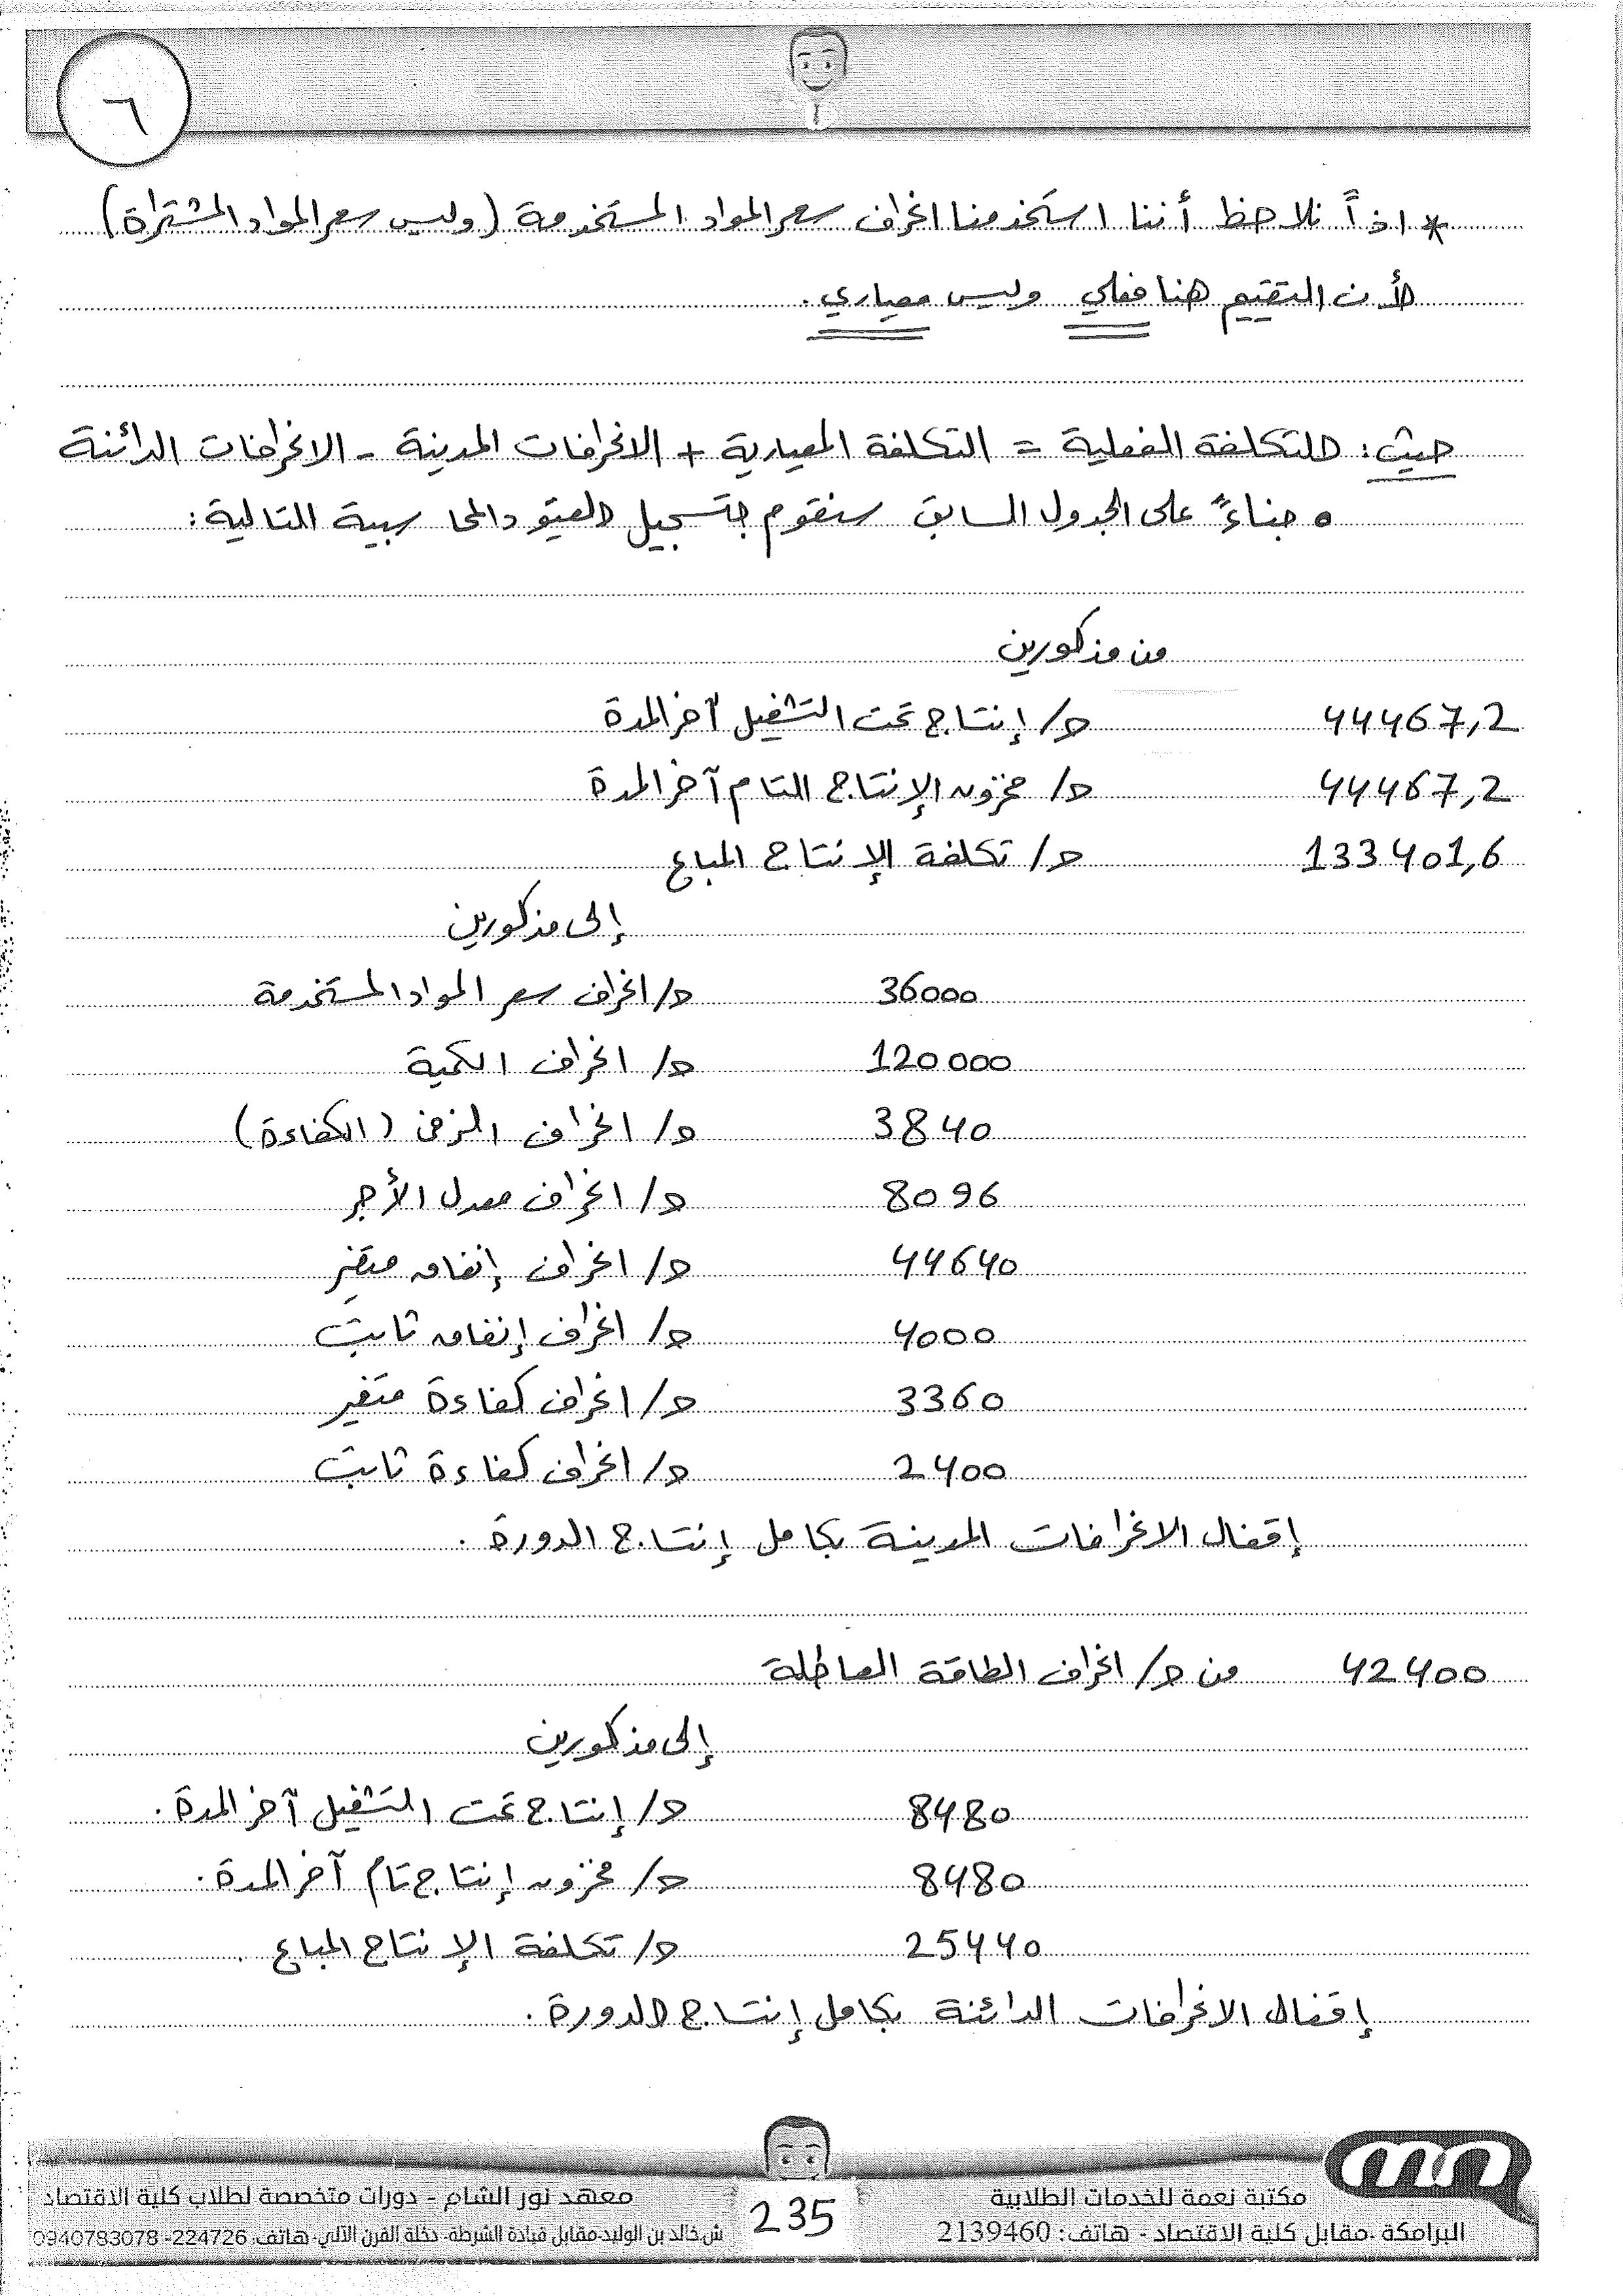 ٦
* اذاً نلاحظ أننا استخدمنا انحراف سعر المواد المستخدمة (وليس سعر المواد المشتراة)
لأن التقييم هنا فعلي وليس معياري.
حيث: التكلفة الفعلية = التكلفة المعيارية + الانحرافات المدينة - الانحرافات الدائنة
• بناءً على الجدول السابق سنقوم بتسجيل القيود المحاسبية التالية:
من مذكورين
44467,2 ح/ إنتاج تحت التشغيل آخر المدة
44467,2 ح/ مخزون الإنتاج التام آخر المدة
133401,6 ح/ تكلفة الإنتاج المباع
إلى مذكورين
36000 ح/ انحراف سعر المواد المستخدمة
120000 ح/ انحراف الكمية
3840 ح/ انحراف الزمن (الكفاءة)
8096 ح/ انحراف معدل الأجر
44640 ح/ انحراف إنفاق متغير
4000 ح/ انحراف إنفاق ثابت
3360 ح/ انحراف كفاءة متغير
2400 ح/ انحراف كفاءة ثابت
إقفال الانحرافات المدينة بكامل إنتاج الدورة.
42400 من ح/ انحراف الطاقة العاطلة
إلى مذكورين
8480 ح/ إنتاج تحت التشغيل آخر المدة.
8480 ح/ مخزون إنتاج تام آخر المدة.
25440 ح/ تكلفة الإنتاج المباع.
إقفال الانحرافات الدائنة بكامل إنتاج الدورة.
مكتبة نعمة للخدمات الطلابية
البرامكة -مقابل كلية الاقتصاد - هاتف: 2139460
235
معهد نور الشام - دورات متخصصة لطلاب كلية الاقتصاد
ش.خالد بن الوليد-مقابل قيادة الشرطة- دخلة الفرن الآلي-هاتف: 224726- 0940783078